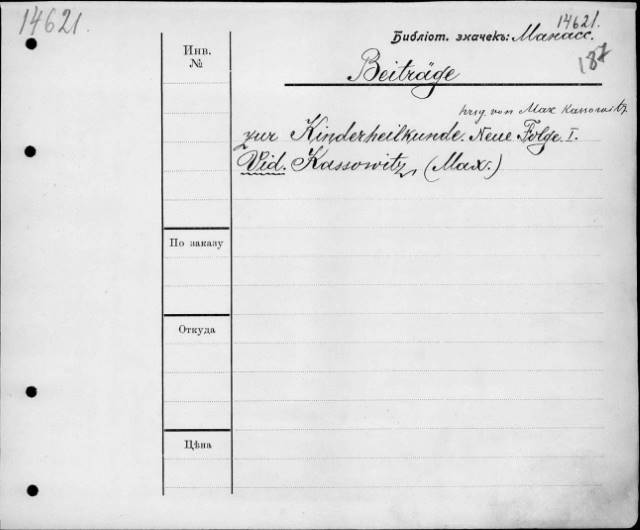 14621.
14621.
Библіот. значекъ: Манасс.
187
Инв.
№
Beiträge
hrsg. von Max Kassowitz
zur Kinderheilkunde. Neue Folge. I.
Vid. Kassowitz, (Max.)
По заказу
Откуда
Цѣна